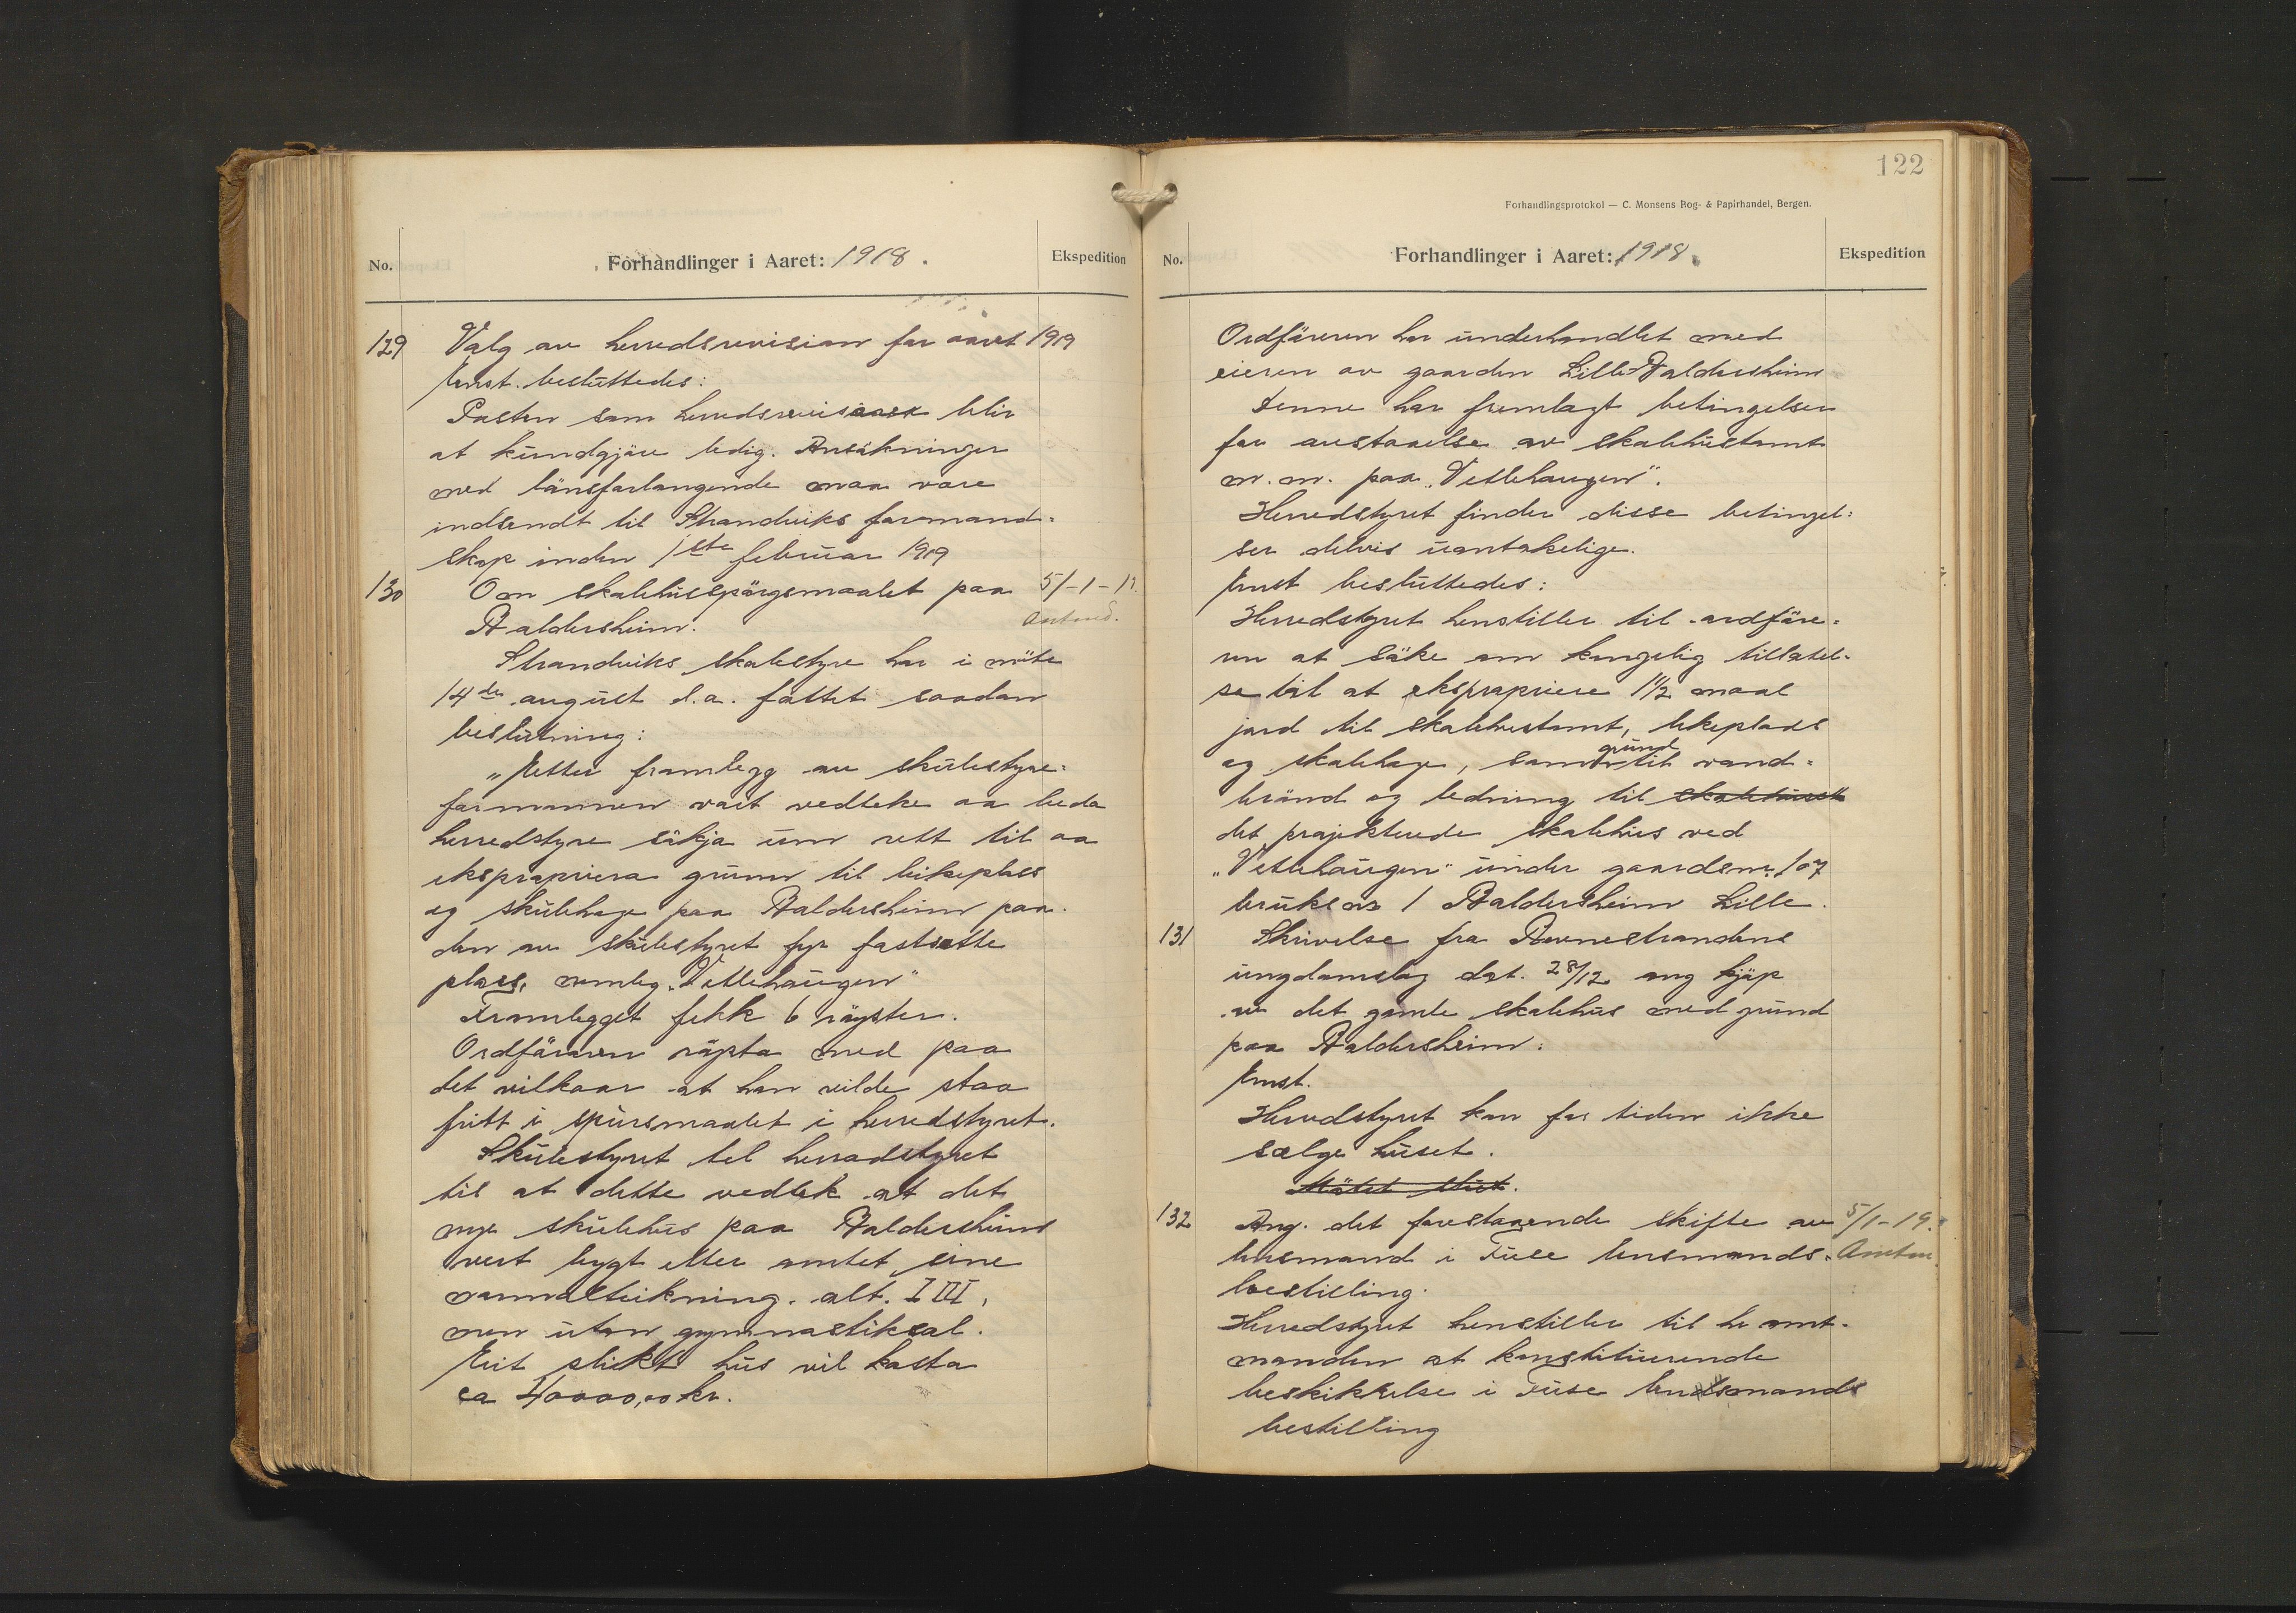 No.
Forhandlinger i Aaret: 1918.
Ekspedition
129 Valg av herredsrevision for aaret 1919
Enst. besluttedes:
Posten som herredsrevisor blir
at kundgjøre ledig. Ansøkninger
med lønsforlangende maa være
indsendt til Strandviks formand-
skap inden 1ste februar 1919
130 Om skolehusspørgsmaalet paa 5/-1-19.
Baldersheim.
Strandviks skolestyre har i møte
14de august d.a. fattet saadan
beslutning:
„Etter framlegg av skulestyre-
formannen vart vedteke aa beda
herredstyre søkja um rett til aa
ekspropriera grunn til leikeplass
og skulehage paa Baldersheim paa
den av skulestyret fyr fastsette
plass, nemleg „Vetlehaugen"
Framlegget fekk 6 røyster.
Ordføraren røysta med paa
det vilkaar at han vilde staa
fritt i spursmaalet i herredstyret.
Skulestyret tel herradstyret
til at dette vedtek at det
nye skulehus paa Baldersheim
vert bygt etter amtet sine
normalteikning. alt. I III,
men utan gymnastiksal.
Eit slikt hus vil kosta
ca 40000,00 kr.
122
Forhandlingsprotokol — C. Monsens Bog- & Papirhandel, Bergen.
No.
Forhandlinger i Aaret: 1918.
Ekspedition
Ordføreren har underhandlet med
eieren av gaarden Lille-Baldersheim
Denne har fremlagt betingelser
for avstaaelse av skolehustomt
m.m. paa „Vetlehaugen".
Herredstyret finder disse betingel-
ser delvis uantakelige.
Enst besluttedes:
Herredstyret henstiller til ordføre-
ren at søke om kongelig tillatel-
se til at ekspropriere 1½ maal
jord til skolehustomt, lekeplads
og skolehage, samt grund til vand-
brønd og ledning til skolehuset
det projekterede skolehus ved
„Vetlehaugen" under gaardsnr. 107
bruksnr 1 Baldersheim Lille.
131 Skrivelse fra Revnestrandens
ungdomslag dat. 28/12 ang kjøp
av det gamle skolehus med grund
paa Baldersheim.
Enst.
Herredstyret kan for tiden ikke
sælge huset.
Møtet slut.
132 Ang. det forestaaende skifte av 5/1-19.
lensmand i Fuse lensmands-
bestilling.
Herredstyret henstiller til hr amt-
manden at konstituerende
beskikkelse i Fuse lensmands
bestilling